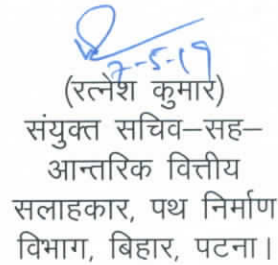 7-5-19
(रत्नेश कुमार)
संयुक्त सचिव–सह–
आन्तरिक वित्तीय
सलाहकार, पथ निर्माण
विभाग, बिहार, पटना।